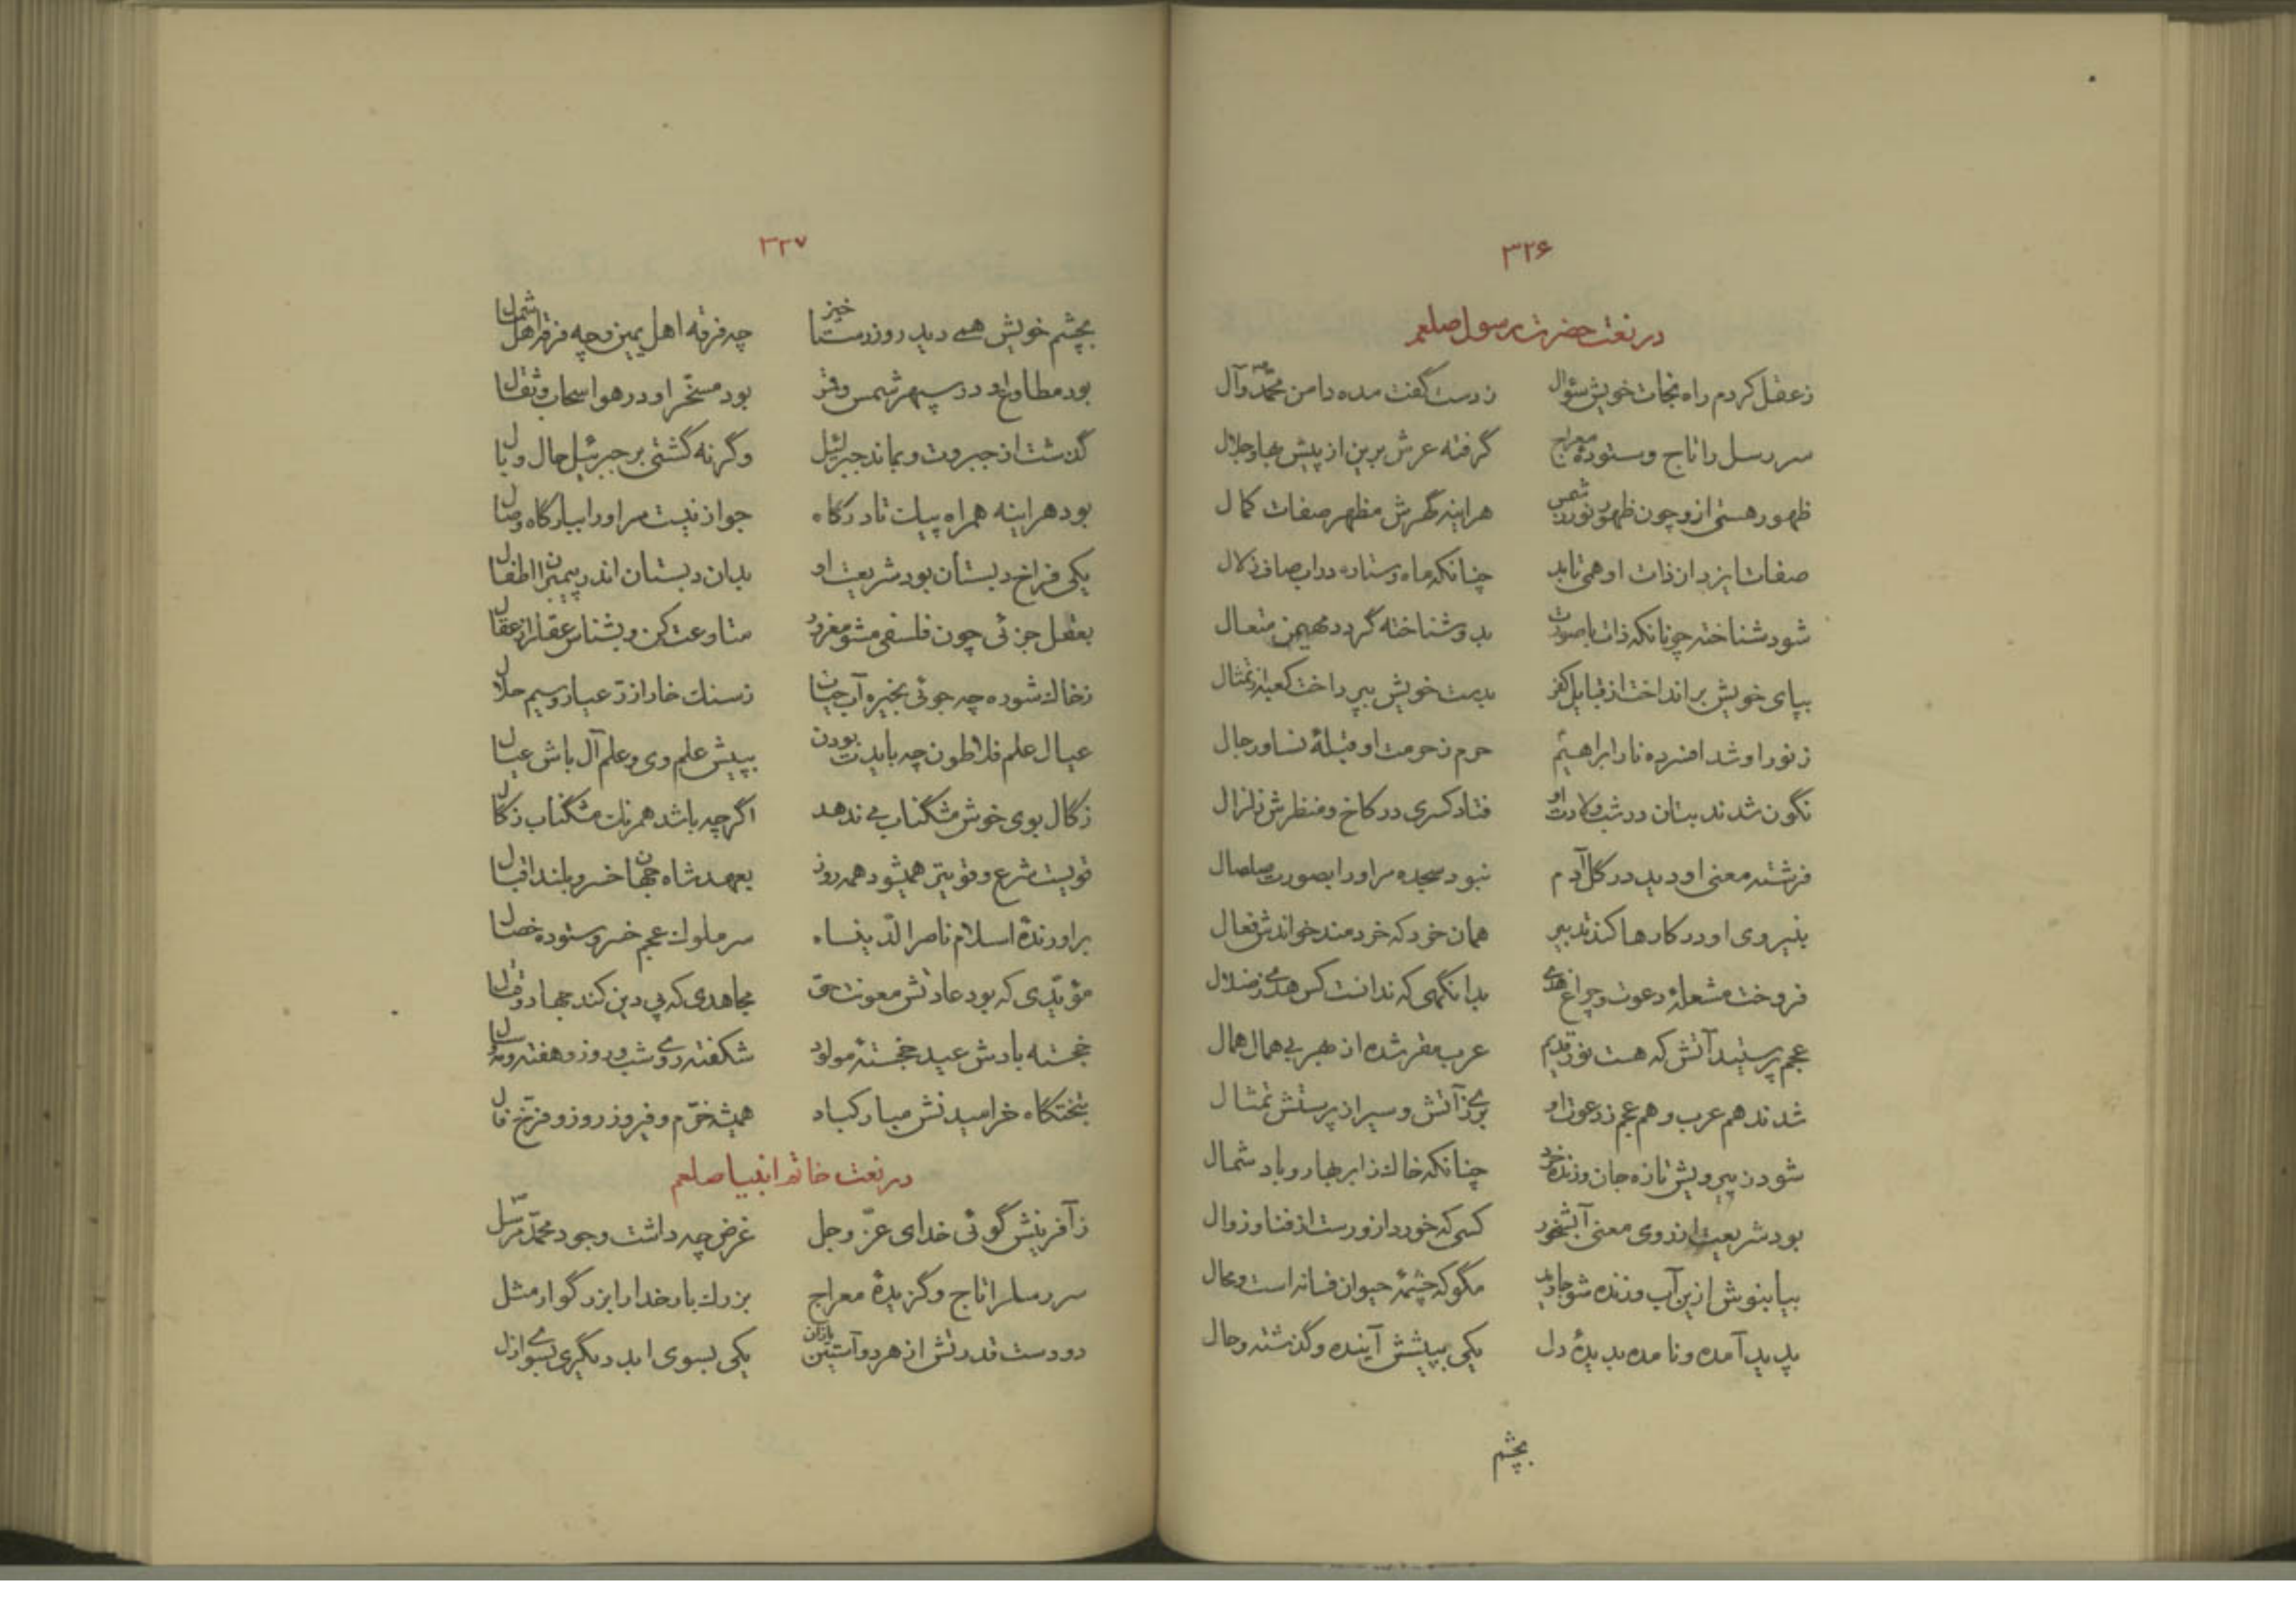 ۳۲۶
در نعت حضرت رسول صلعم
ز عقل کردم راه نجات خویش سؤال ز دست گفت مده دامن محمّد وآل
سر رسل را تاج و ستودۀ معراج گرفته عرش برین از پیش بها و جلال
ظهور هستی ازو چون ظهور نور ز شمس هراینه گهرش مظهر صفات کمال
صفات ایزد از ذات او همی تابد چنانکه ماه و ستاره در اب صاف زلال
شود شناخته چونانکه ذات با صورت بدو شناخته گردد مهیمن متعال
بپای خویش برانداخت از قبایل کفر بدست خویش بپرداخت کعبه از تمثال
ز نور او شد افسرده نار ابراهیم حرم ز حرمت او قبلۀ نسا و رجال
نگون شدند بتان در شب ولادت او فتاد کسری در کاخ و منظرش زلزال
فرشته معنی او دید در گل آدم نبود سجده مر اورا بصورت صلصال
بنیروی او در کارها کند تدبیر همان خرد که خردمند خواندش فعال
فروخت مشعلۀ دعوت و چراغ هدی بدانگهی که ندانست کس هدی ز ضلال
عجم پرستید آتش که هست نور قدیم عرب مقر شده از بهر بی همال همال
شدند هم عرب و هم عجم ز دعوت او بری ز آتش و سیر از پرستش تمثال
شود ز پیرویش تازه جان و زنده خرد چنانکه خاك ز ابر بهار و باد شمال
بود شریعت از روی معنی آبشخور کسی که خورد ازو رست از فنا و زوال
بیا بنوش ازین آب و زنده شو جاوید مگو که چشمۀ حیوان فسانه است و محال
پدید آمده و نامده بدیدۀ دل یکی بپیشش آینده و گذشته و حال
بچشم
۳۲۷
بچشم خویش همی دید روز رستاخیز چه فرقه اهل یمین و چه فرقه اهل شمال
بود مطاوع او در سپهر شمس و قمر بود مسخّر او در هوا سحاب ثقال
گذشت از جبروت و بماند جبرئیل وگرنه گشتی بر جبرئیل حال وبال
بود هراینه همراه پیك تا درگاه جواز نیست مر اورا ببارگاه وصال
یکی فراخ دبستان بود شریعت او بدان دبستان اندر پیمبران اطفال
بعقل جزئی چون فلسفی مشو مغرور متاوعت کن و بشناس عقل از عقال
ز خاك شوره چه جوئی بخیره آب حیات ز سنك خارا زرّ عیار و سیم حلال
عیال علم فلاطون چه بایدت بودن بپیش علم وی و علم آل باش عیال
زگال بوی خوش مشگناب می ندهد اگرچه باشد همرنك مشگناب زگال
قویست شرع و قویتر همیشود همه روز بعهد شاه جهان خسرو بلند اقبال
براورندۀ اسلام ناصر الدّینشاه سر ملوك عجم خسرو ستوده خصال
مؤیّدی که بود عادتش معونت حق مجاهدی که پی دین کند جهاد و قتال
خجسته بادش عید خجستۀ مولود شکفته روی شب و روز و هفته و مه و سال
بتختگاه خرامیدنش مبارکباد همیشه خرّم و فیروز روز و فرّخ فال
در نعت خاتم انبیا صلعم
ز آفرینش گوئی خدای عزّ و جل غرض چه داشت وجود محمّد مرسل
سر رسل را تاج و گزیدۀ معراج بزرك بار خدا را بزرگوار مثل
دو دست قدرتش از هر دو آستین یازان یکی بسوی ابد دیگری بسوی ازل